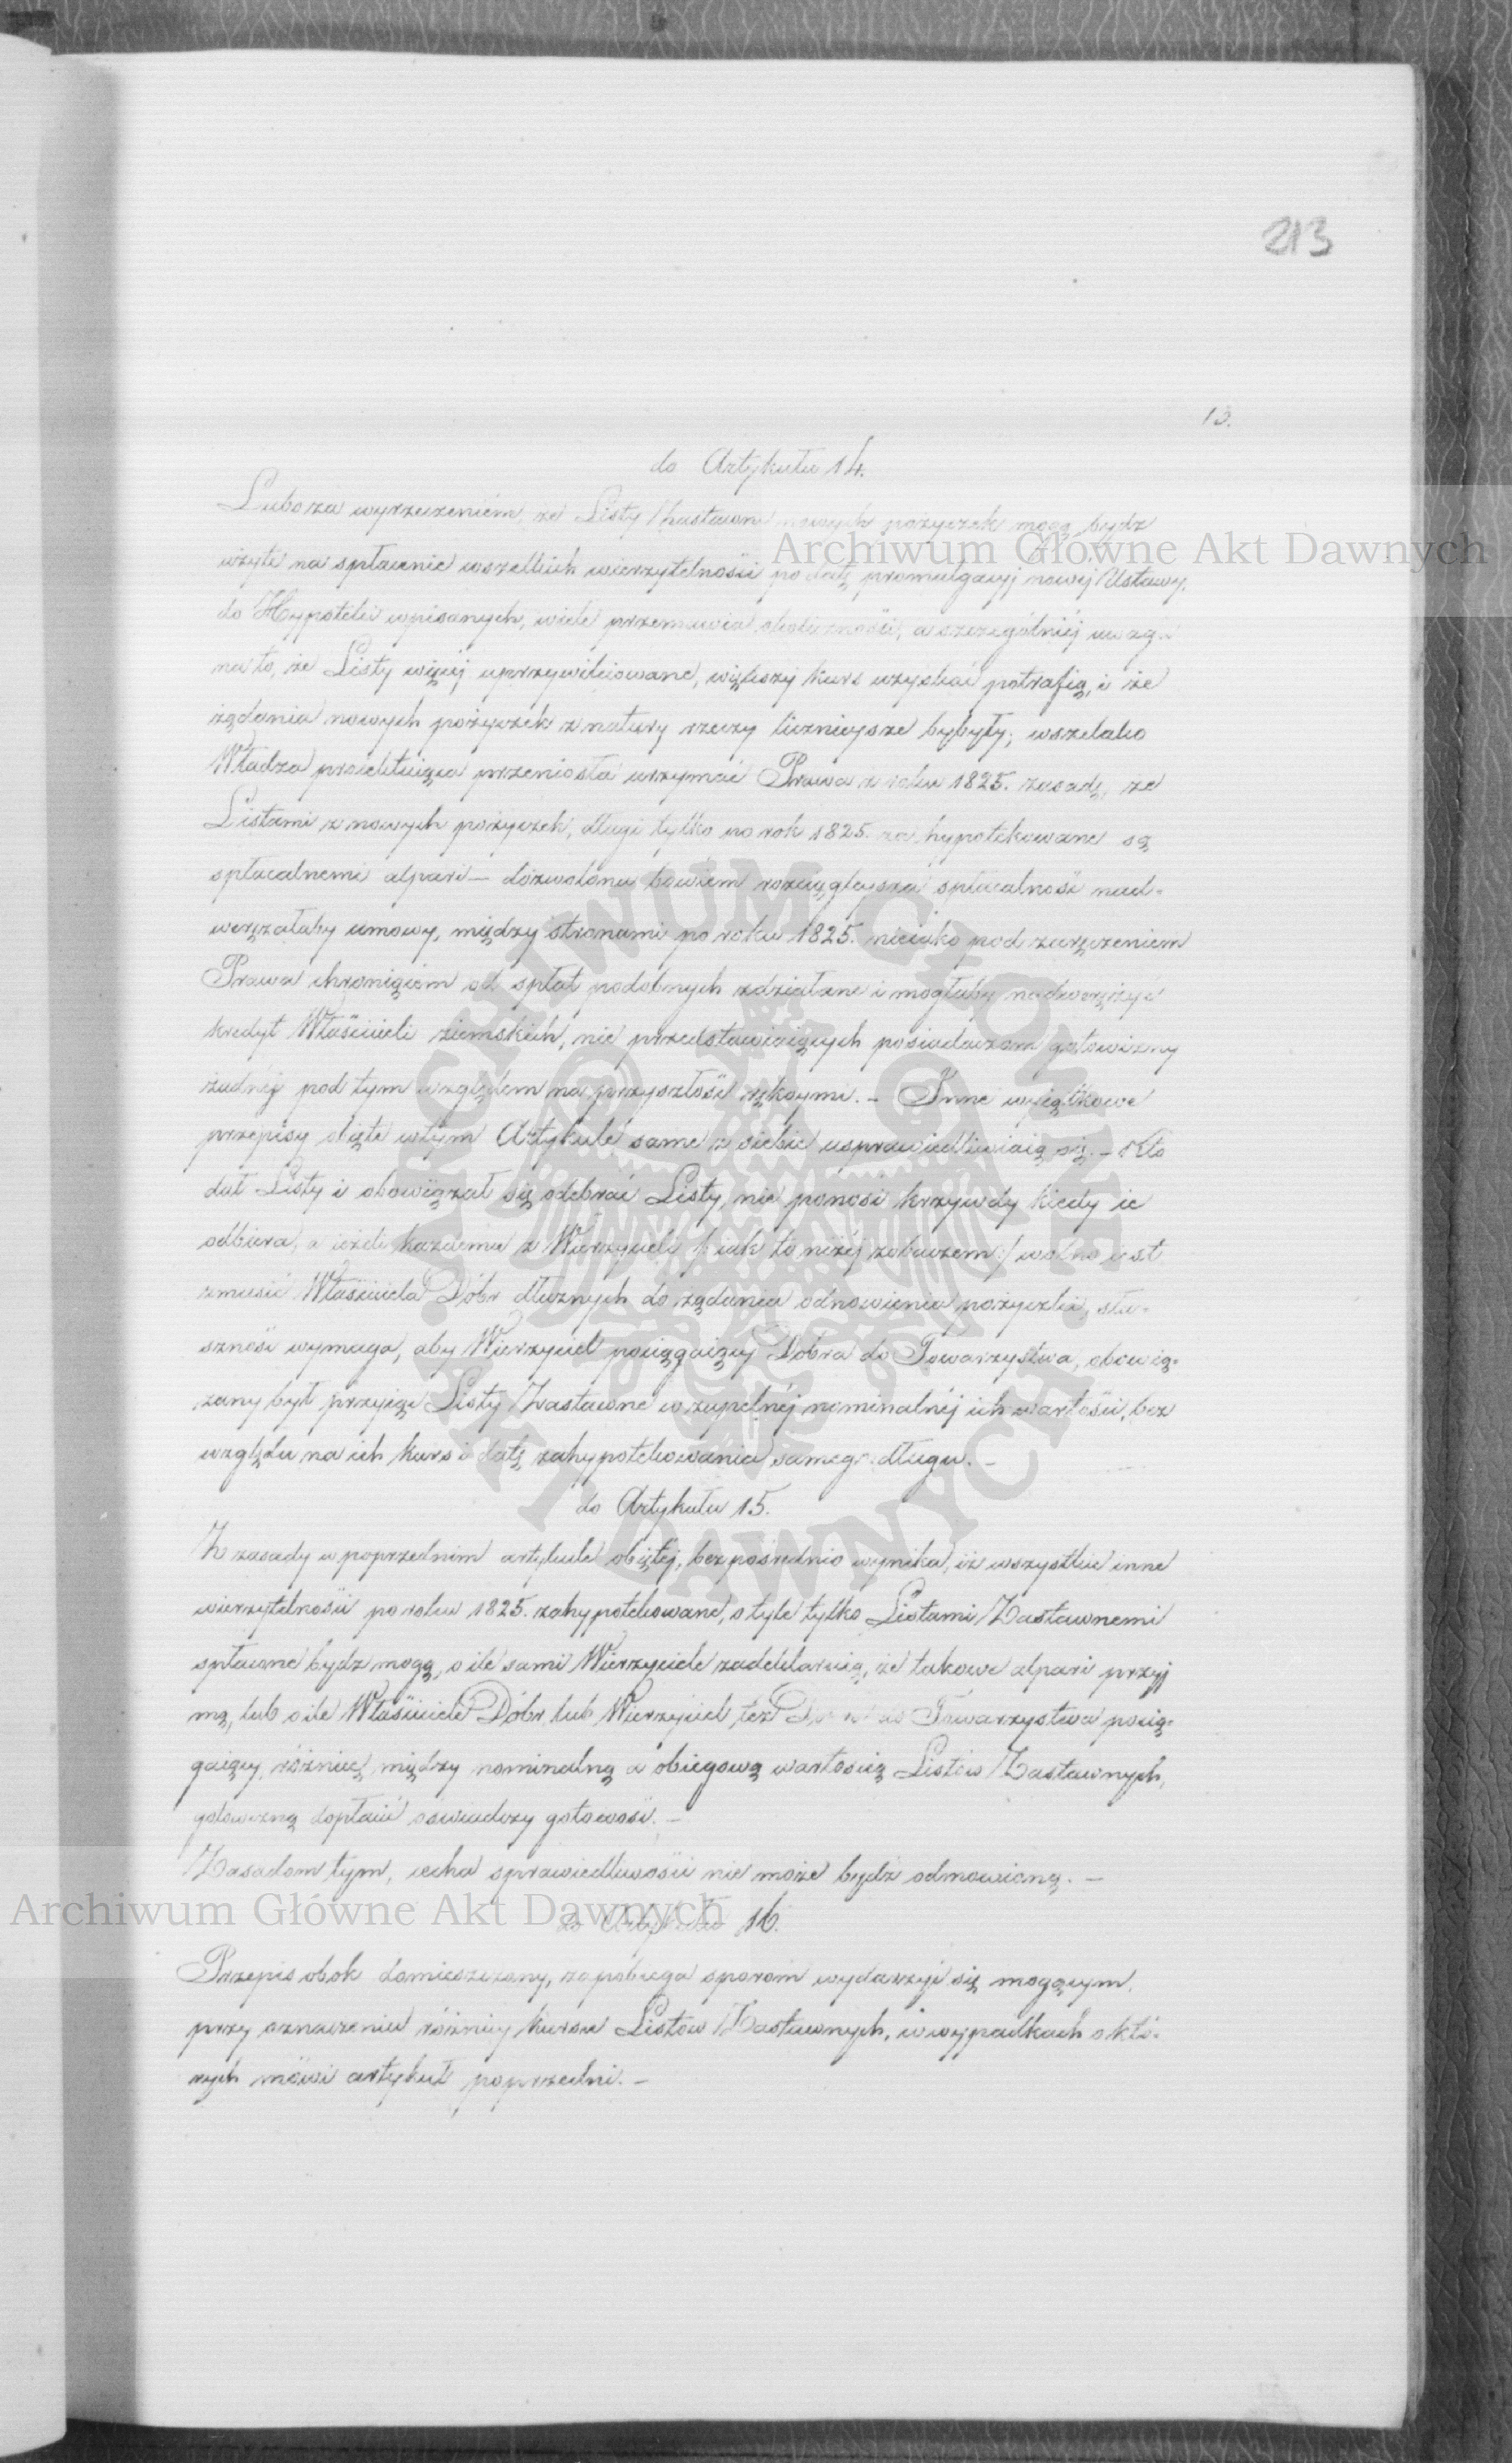 213
13.
do Artykułu 14.
Lubo za wyrzeczeniem, że Listy Zastawne nowych pożyczek mogą bydz
użyte na spłacenie wszelkich wierzytelności po datę promulgacyj nowéj Ustawy,
do Hypoteki wpisanych, wiele przemawia okoliczności, a szczególniéj uwaga
na to, że Listy więcéj uprzywileiowane, większy kurs uzyskać potrafią, i że
żądania nowych pożyczek z natury rzeczy licznieysze byłyby; wszelako
Władza proiektuiąca przeniosła utrzymać Prawa z roku 1825. zasadę, że
Listami z nowych pożyczek, długi tylko po rok 1825. za hypotekowane są
spłacalnemi alpari – dozwolona bowiem rozciągleysza spłacalność nad-
weręzałaby umowy, między stronami po roku 1825. nieiako pod zaręczeniem
Prawa chroniącem od spłat podobnych zdziałane i mogłaby nadwerężyć
kredyt Właścicieli ziemskich, nie przedstawiaiących posiadaczom gotowizny
żadnéj pod tym względem na przyszłość rękoymi. – Inne wyiątkowe
przepisy obięte w tym Artykule same z siebie usprawiedliwiaią się. – Kto
dał Listy i obowiązał się odebrać Listy, nie ponosi krzywdy kiedy ie
odbiera, a ieżeli każdemu z Wierzycieli /: iak to niżéj zobaczem :/ wolno iest
zmusić Właściciela Dóbr dłużnych do żądania odnowienia pożyczki, słu-
szność wymaga, aby Wierzyciel pociągaiący Dobra do Towarzystwa, obowią-
zany był przyiąć Listy Zastawne w zupełnéj nominalnéj ich wartości, bez
względu na ich kurs i datę zahypotekowania samego długu. –
do Artykułu 15.
Z zasady w poprzednim artykule obiętéj, bezpośrednio wynika, iż wszystkie inne
wierzytelności po roku 1825. zahypotekowane, o tyle tylko Listami Zastawnemi
spłacone bydz mogą, o ile sami Wierzyciele zadeklaruią, że takowe alpari przyj
mą, lub o ile Właściciel Dóbr, lub Wierzyciel też Dobra do Towarzystwa pocią-
gaiący, różnicę między nominalną a obiegową wartością Listów Zastawnych,
gotowizną dopłacić oswiadczy gotowość. –
Zasadom tym, cecha sprawiedliwości nie może bydź odmowioną. –
do Artykułu 16.
Przepis obok domieszczony, zapobiega sporom wydarzyć się mogącym,
przy oznaczeniu różnicy kursu Listów Zastawnych, w wypadkach o któ-
rych mówi artykuł poprzedni. –
Archiwum Główne Akt Dawnych
Archiwum Główne Akt Dawnych
ARCHIWUM GŁÓWNE
AKT DAWNYCH